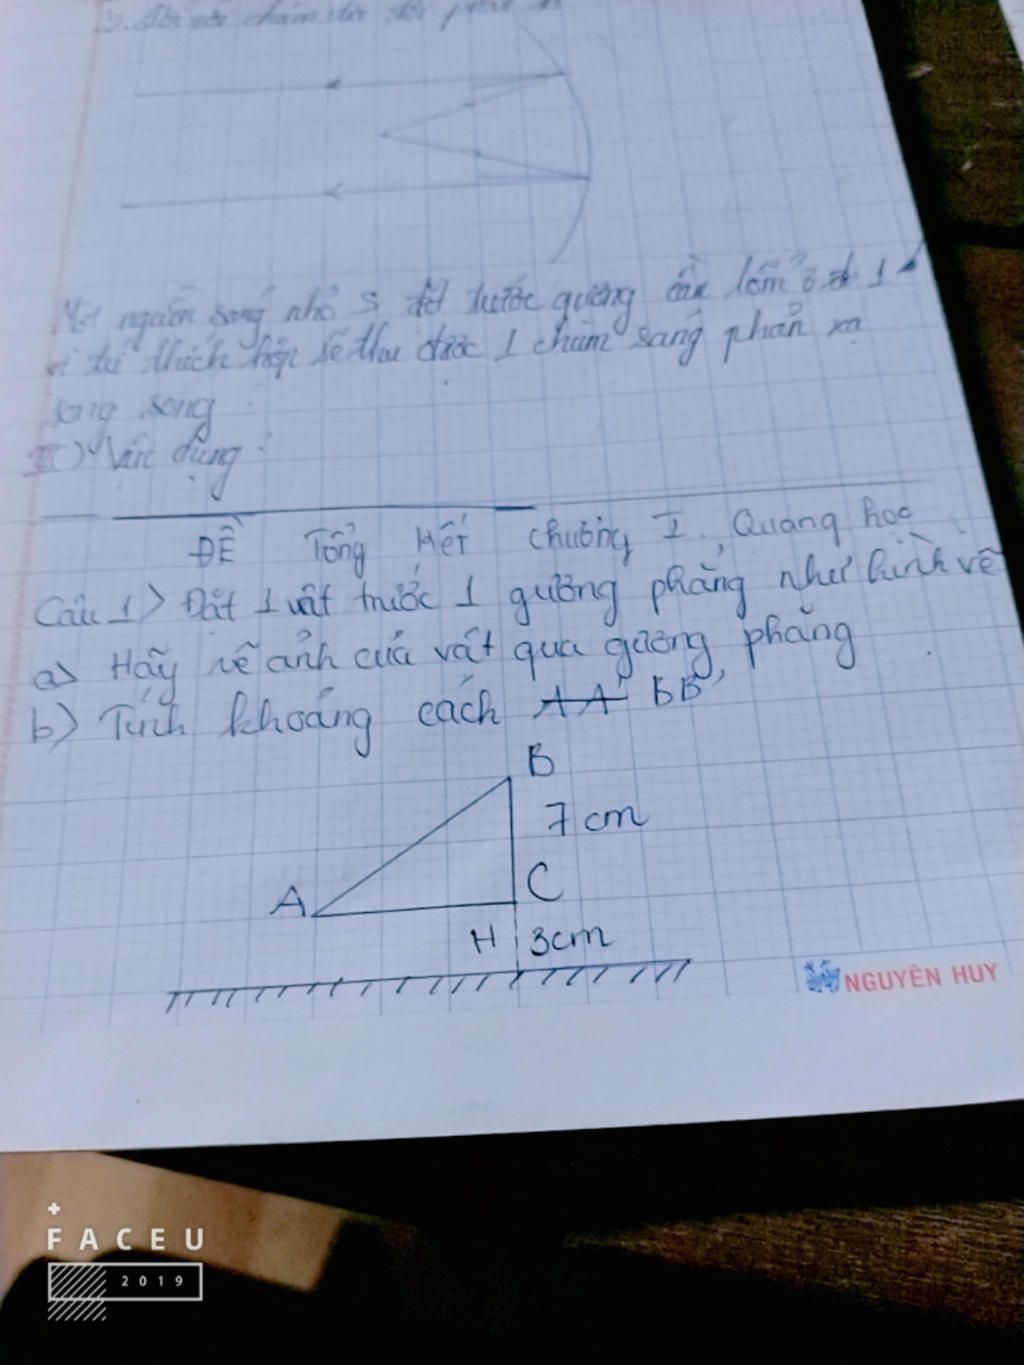 3.
Một nguồn sáng nhỏ S đặt trước gương cầu lõm ở 1
vị trí thích hợp sẽ thu được 1 chùm sáng phản xạ
song song
III) Vận dụng:
ĐỀ Tổng Hết Chương I, Quang học
Câu 1> Đặt 1 vật trước 1 gương phẳng như hình vẽ
a> Hãy vẽ ảnh của vật qua gương phẳng
b) Tính khoảng cách AA' BB'
B
7 cm
A
C
H 3cm
NGUYÊN HUY
FACEU
2019